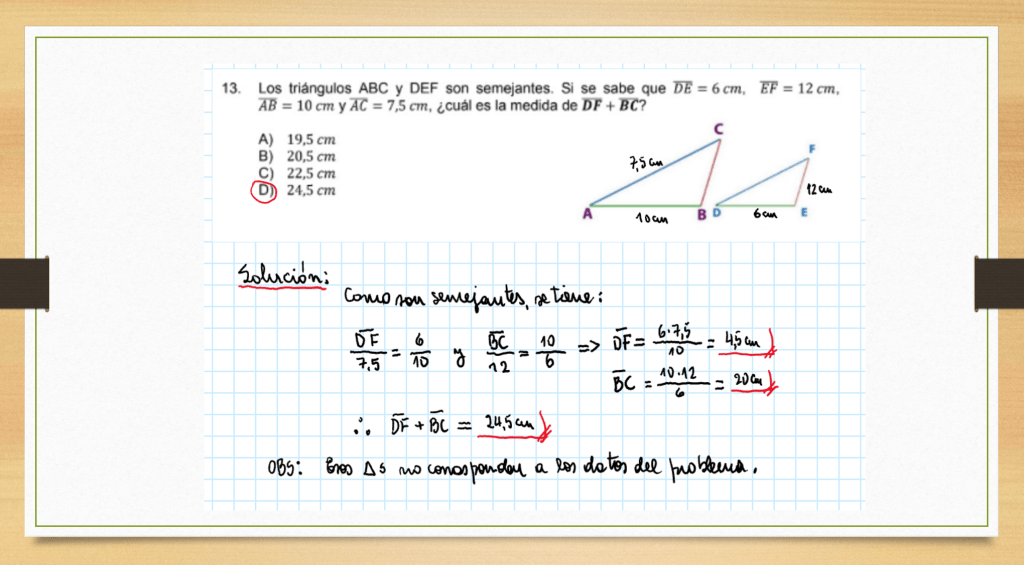 13. Los triángulos ABC y DEF son semejantes. Si se sabe que D̅E̅ = 6 cm, E̅F̅ = 12 cm,
A̅B̅ = 10 cm y A̅C̅ = 7,5 cm, ¿cuál es la medida de D̅F̅ + B̅C̅?
A) 19,5 cm
B) 20,5 cm
C) 22,5 cm
D) 24,5 cm
C
F
7,5 cm
12 cm
A
10 cm
B
D
6 cm
E
Solución:
Como son semejantes, se tiene:
D̅F̅/7,5 = 6/10 y B̅C̅/12 = 10/6 => D̅F̅ = 6·7,5/10 = 4,5 cm
B̅C̅ = 10·12/6 = 20 cm
∴ D̅F̅ + B̅C̅ = 24,5 cm
OBS: Esos Δs no corresponden a los datos del problema.